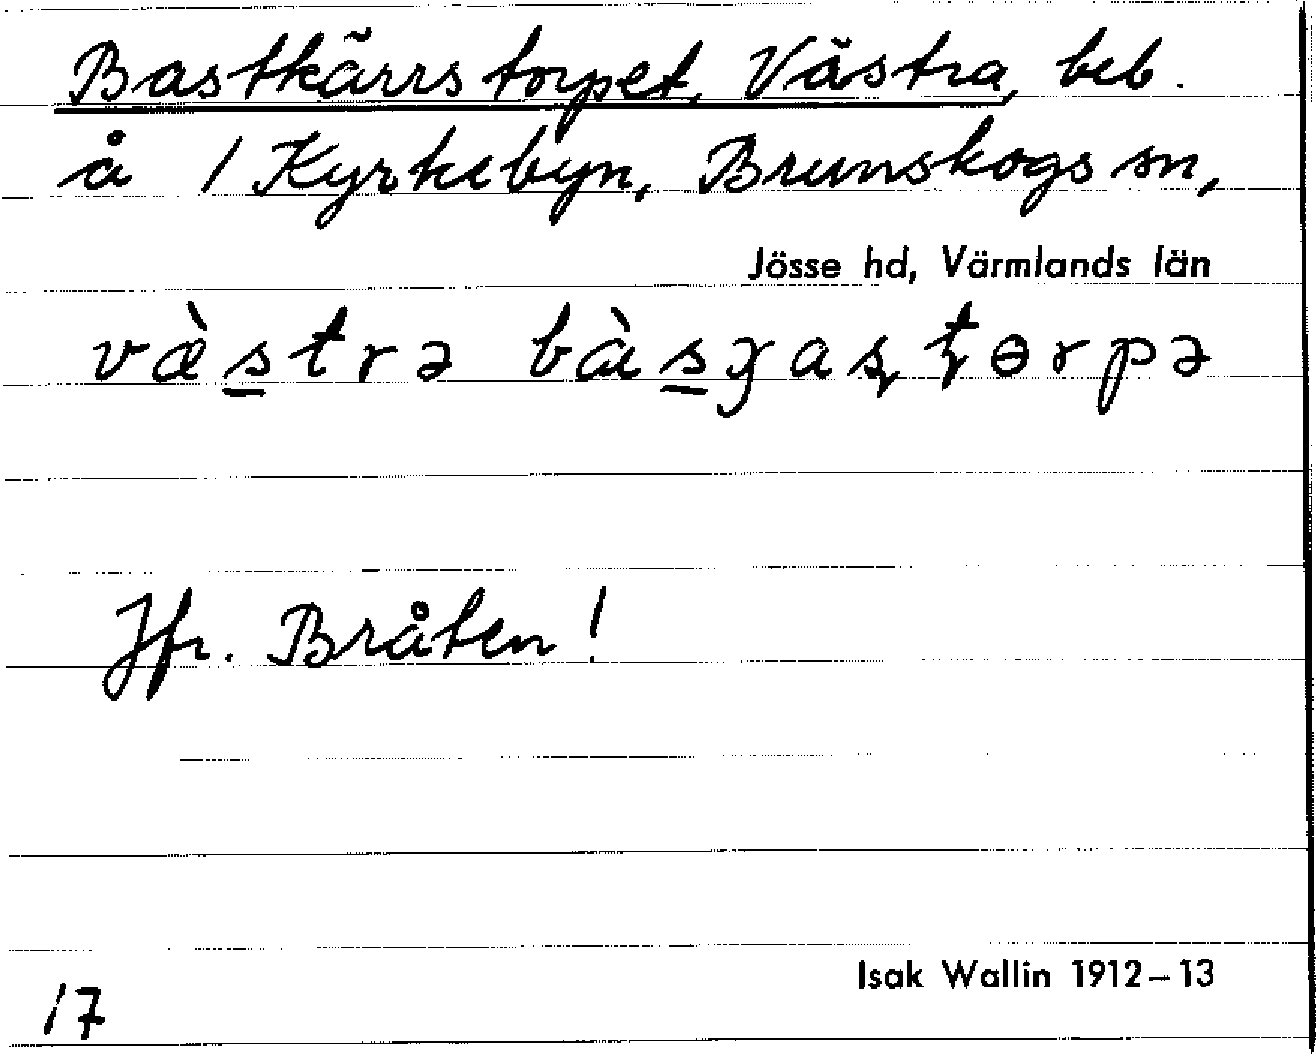 Bastkärrstorpet, Västra, beb.
å 1 Kyrkebyn, Brunskogs sn,
Jösse hd, Värmlands län
væ̀s̲trə bàs̲ɣaʂʈɵrpə
Jfr. Bråten!
Isak Wallin 1912–13
17